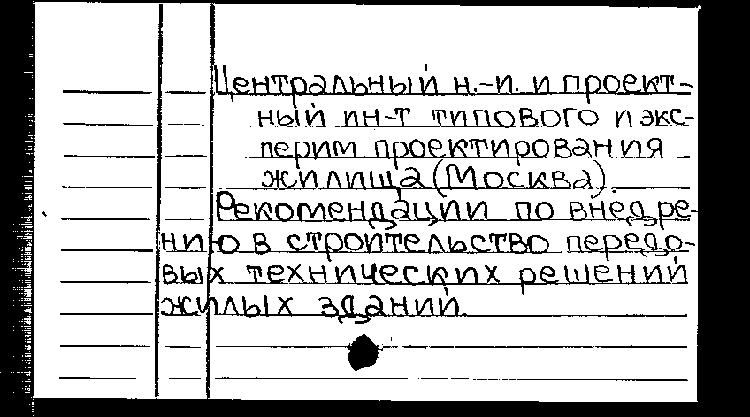 Центральный н.-и. и проект-
ный ин-т типового и экс-
перим проектирования
жилища (Москва).
Рекомендации по внедре-
нию в строительство передо-
вых технических решений
жилых зданий.